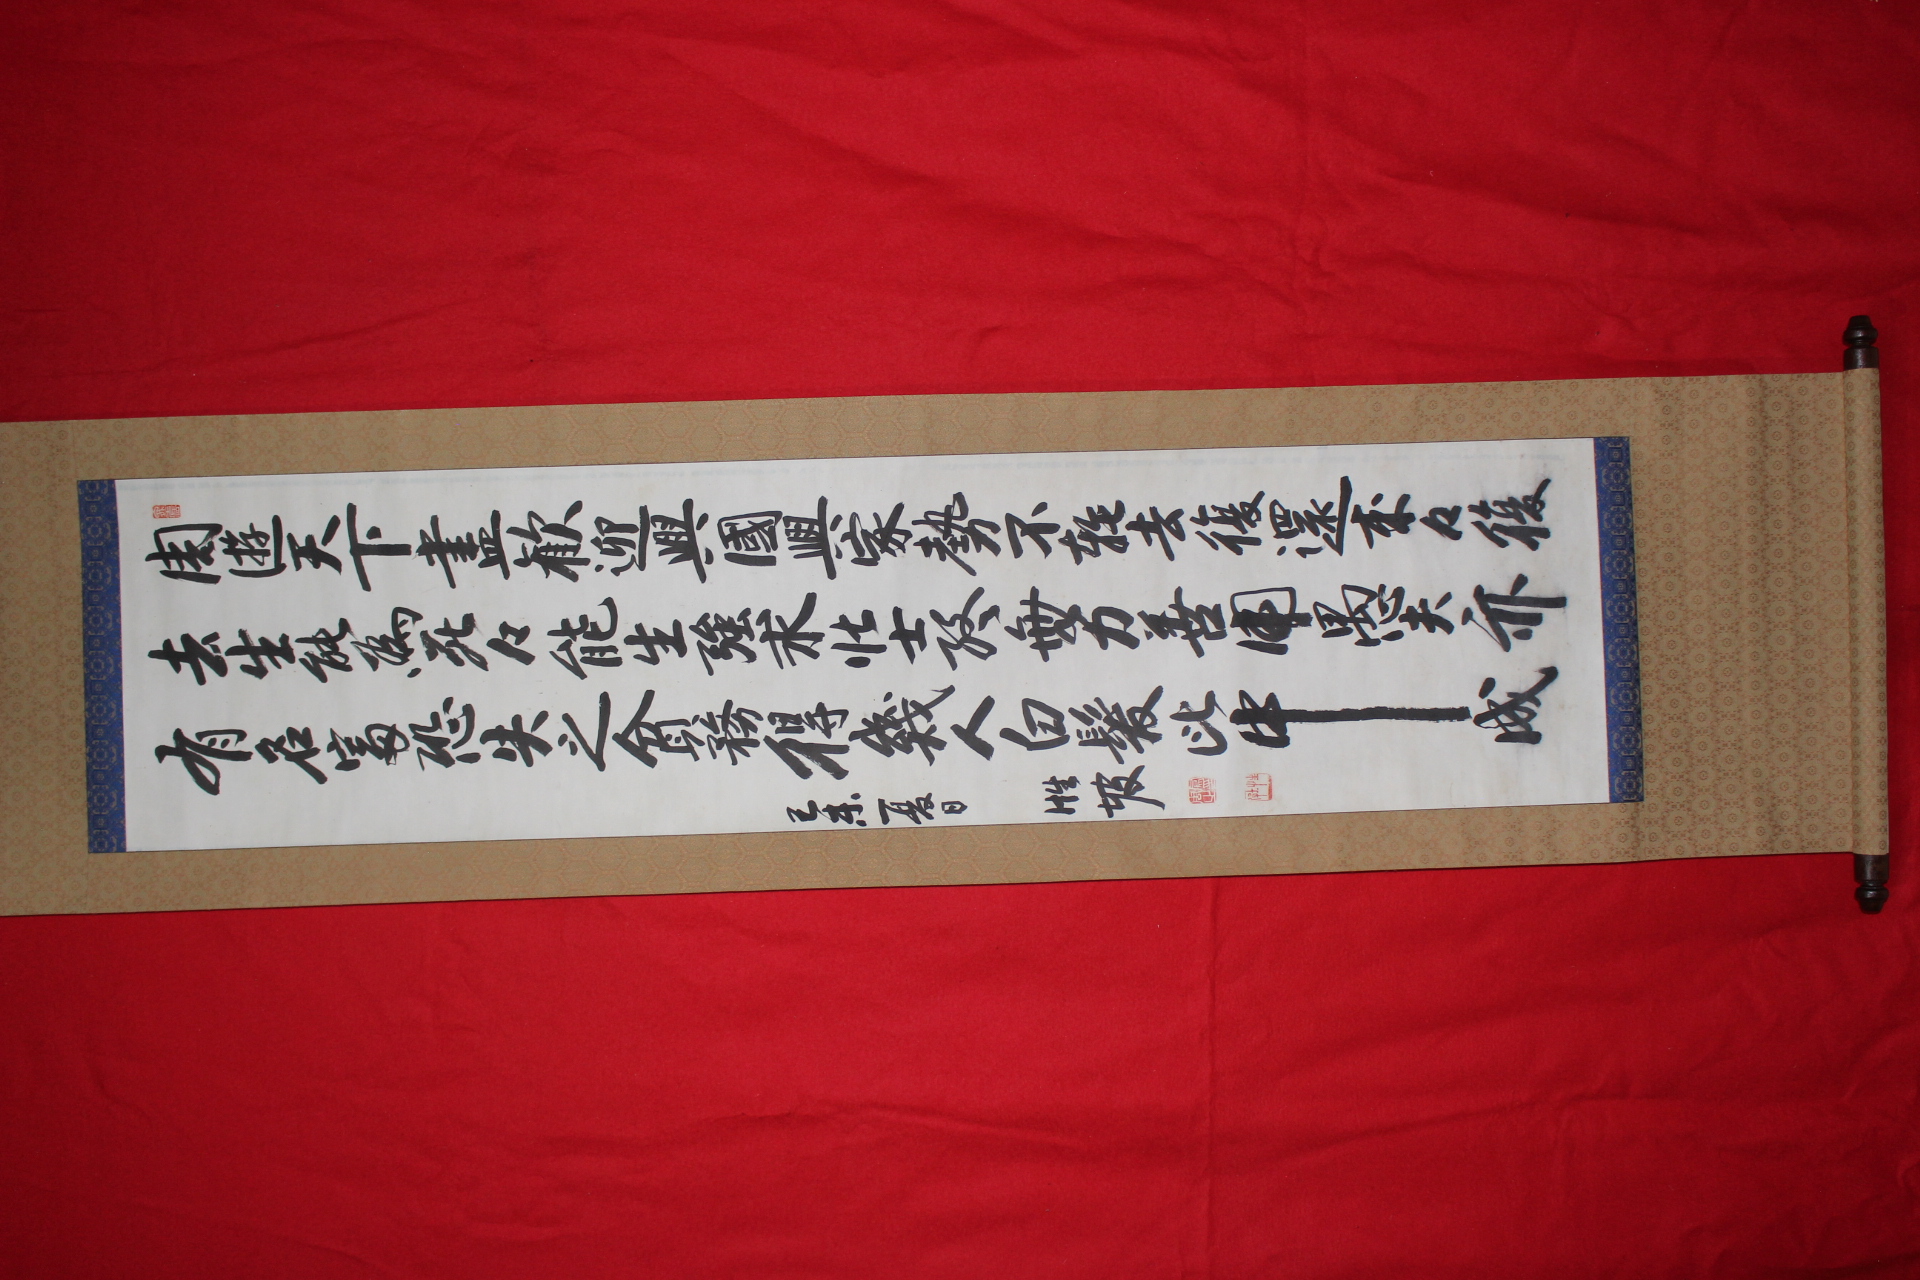 周遊天下盡歡迎興國興家勢不輕去復還來々復
去生能為死々能生強求壯士終無力善用愚夫亦
有名富恐失之貪務得幾人白髮此中成
己未夏日
性坡